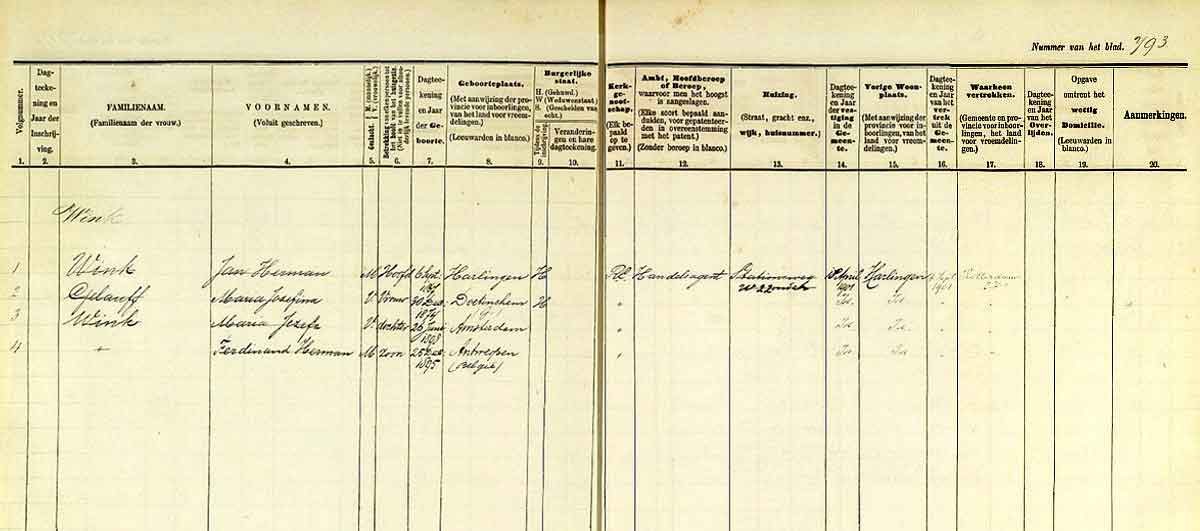 Nummer van het blad. 2/93
Volgnummer.
1.
Dag-
teeke-
ning en
Jaar der
Inschrij-
ving.
2.
FAMILIENAAM.
(Familienaam der vrouw.)
3.
VOORNAMEN.
(Voluit geschreven.)
4.
M. (mannelijk.)
V. (vrouwelijk.)
5.
6.
Dagtee-
kening
en Jaar
der Ge-
boorte.
7.
Geboorteplaats.
(Met aanwijzing der pro-
vincie voor inboorlingen,
van het land voor vreem-
delingen.)
(Leeuwarden in blanco.)
8.
Burgerlijke
staat.
H. (Gehuwd.)
W (Weduwenstaat.)
S. (Gescheiden van
echt.)
9.
Veranderin-
gen en hare
dagteekening.
10.
Kerk-
ge-
noot-
schap.
(Elk be-
paald
op te
geven.)
11.
Ambt, Hoofdberoep
of Beroep,
waarvoor men het hoogst
is aangeslagen.
(Elke soort bepaald aan-
duiden, voor gepatenteer-
den in overeenstemming
met het patent.)
(Zonder beroep in blanco.)
12.
Huizing.
(Straat, gracht enz.,
wijk, huisnummer.)
13.
Dagtee-
kening
en Jaar
der ves-
tiging
in de
Ge-
meen-
te.
14.
Vorige Woon-
plaats.
(Met aanwijzing der
provincie voor inboor-
lingen, van het land
voor vreemdelingen.)
15.
Dagtee-
kening
en Jaar
van het
ver-
trek
uit de
Ge-
meen-
te.
16.
Waarheen
vertrokken.
(Gemeente en pro-
vincie voor inboor-
lingen, het land
voor vreemdelin-
gen.)
17.
Dagtee-
kening
en Jaar
van het
Over-
lijden.
18.
Opgave
omtrent het
wettig
Domicilie.
(Leeuwarden in
blanco.)
19.
Aanmerkingen.
20.
Wink
1 Wink Jan Herman M Hoofd Harlingen H Handelsagent Stationsweg April 1901 Harlingen 1901 Rotterdam
2 Maria Josefina V. Vrouw 1874 Doetinchem H " Is. Is.
3 Wink Maria Jozefa V. dochter 26 Juni 1898 Amsterdam " Is. Is.
4 " Ferdinand Herman M zoon 1895 Antwerpen (België) " Is. Is.